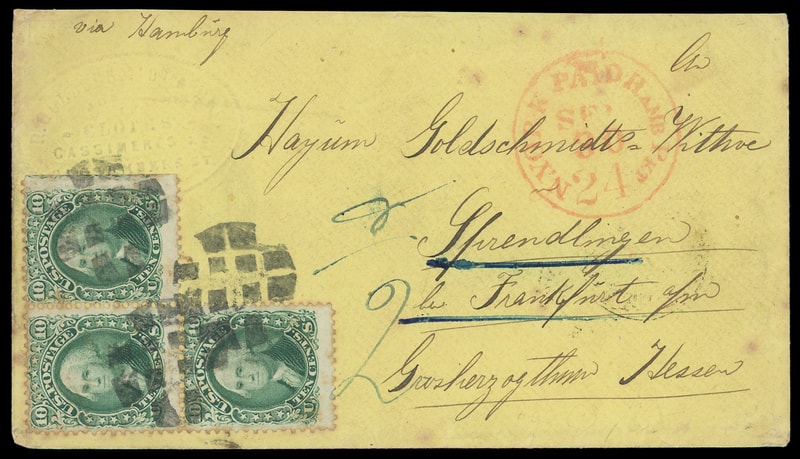 via Hamburg
An
Hayum Goldschmidt's Wittwe
Sprendlingen
bei Frankfurt a/m
Grosherzogthum Hessen
N. YORK PAID HAMB. PKT.
SEP
24
CLOTHS
CASSIMERES
2
10 U.S. POSTAGE TEN CENTS
10 U.S. POSTAGE TEN CENTS
10 U.S. POSTAGE TEN CENTS